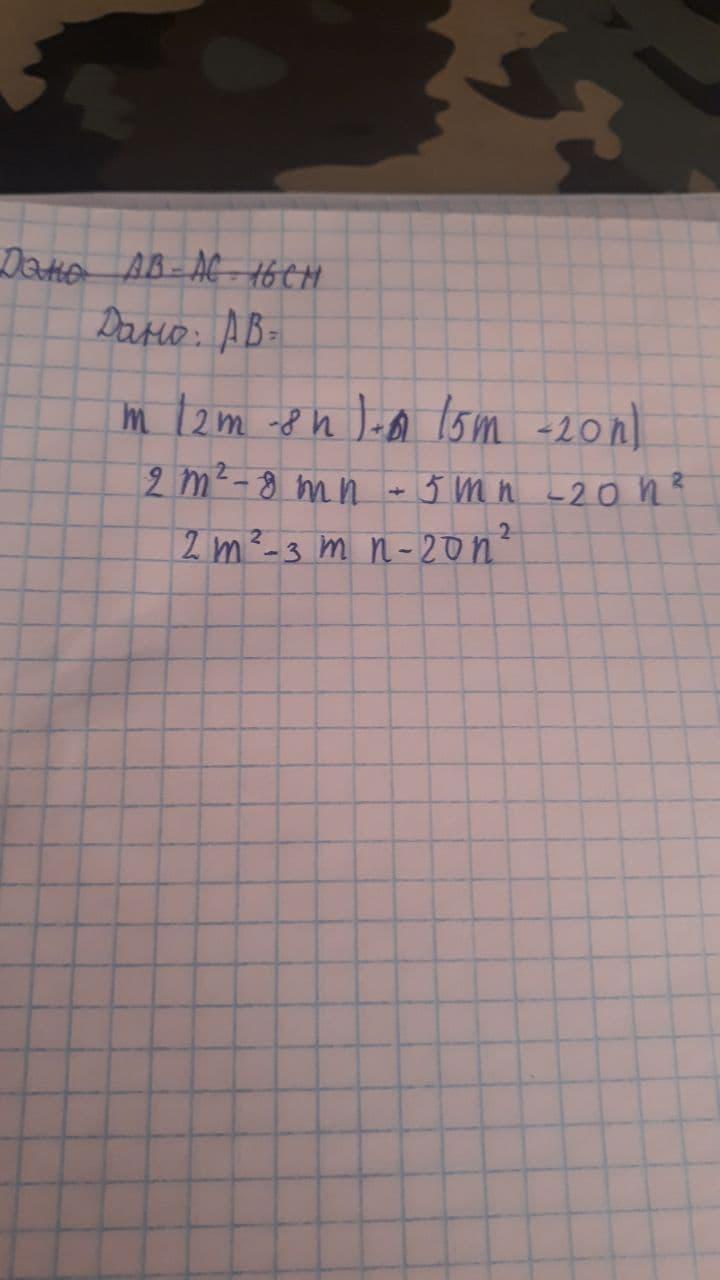 Дано АВ = АС = 16 см
Дано: АВ =
m (2m - 8n) + n (5m - 20n)
2m² - 8mn + 5mn - 20n²
2m² - 3mn - 20n²